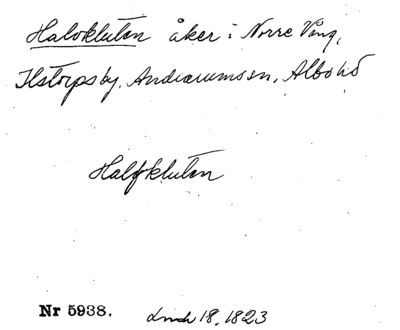 Halvkluten åker i Norre Vång,
Ilstorps by, Andrarums sn, Albo hd
Halfkluten
Nr 5938. 18, 1823